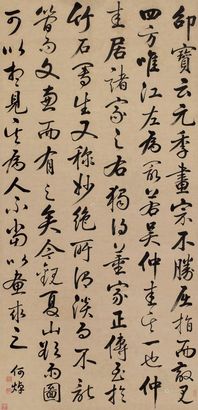 邵寶云元季畫宗不勝屈指而散見
四方唯江左為最若吳仲圭其一也仲
圭居諸家之右獨得董家正傳至於
竹石寫生又稱妙絕所不能
兼而有之矣今觀夏山欲雨圖
可以想見其為人不當以畫求之
何焯